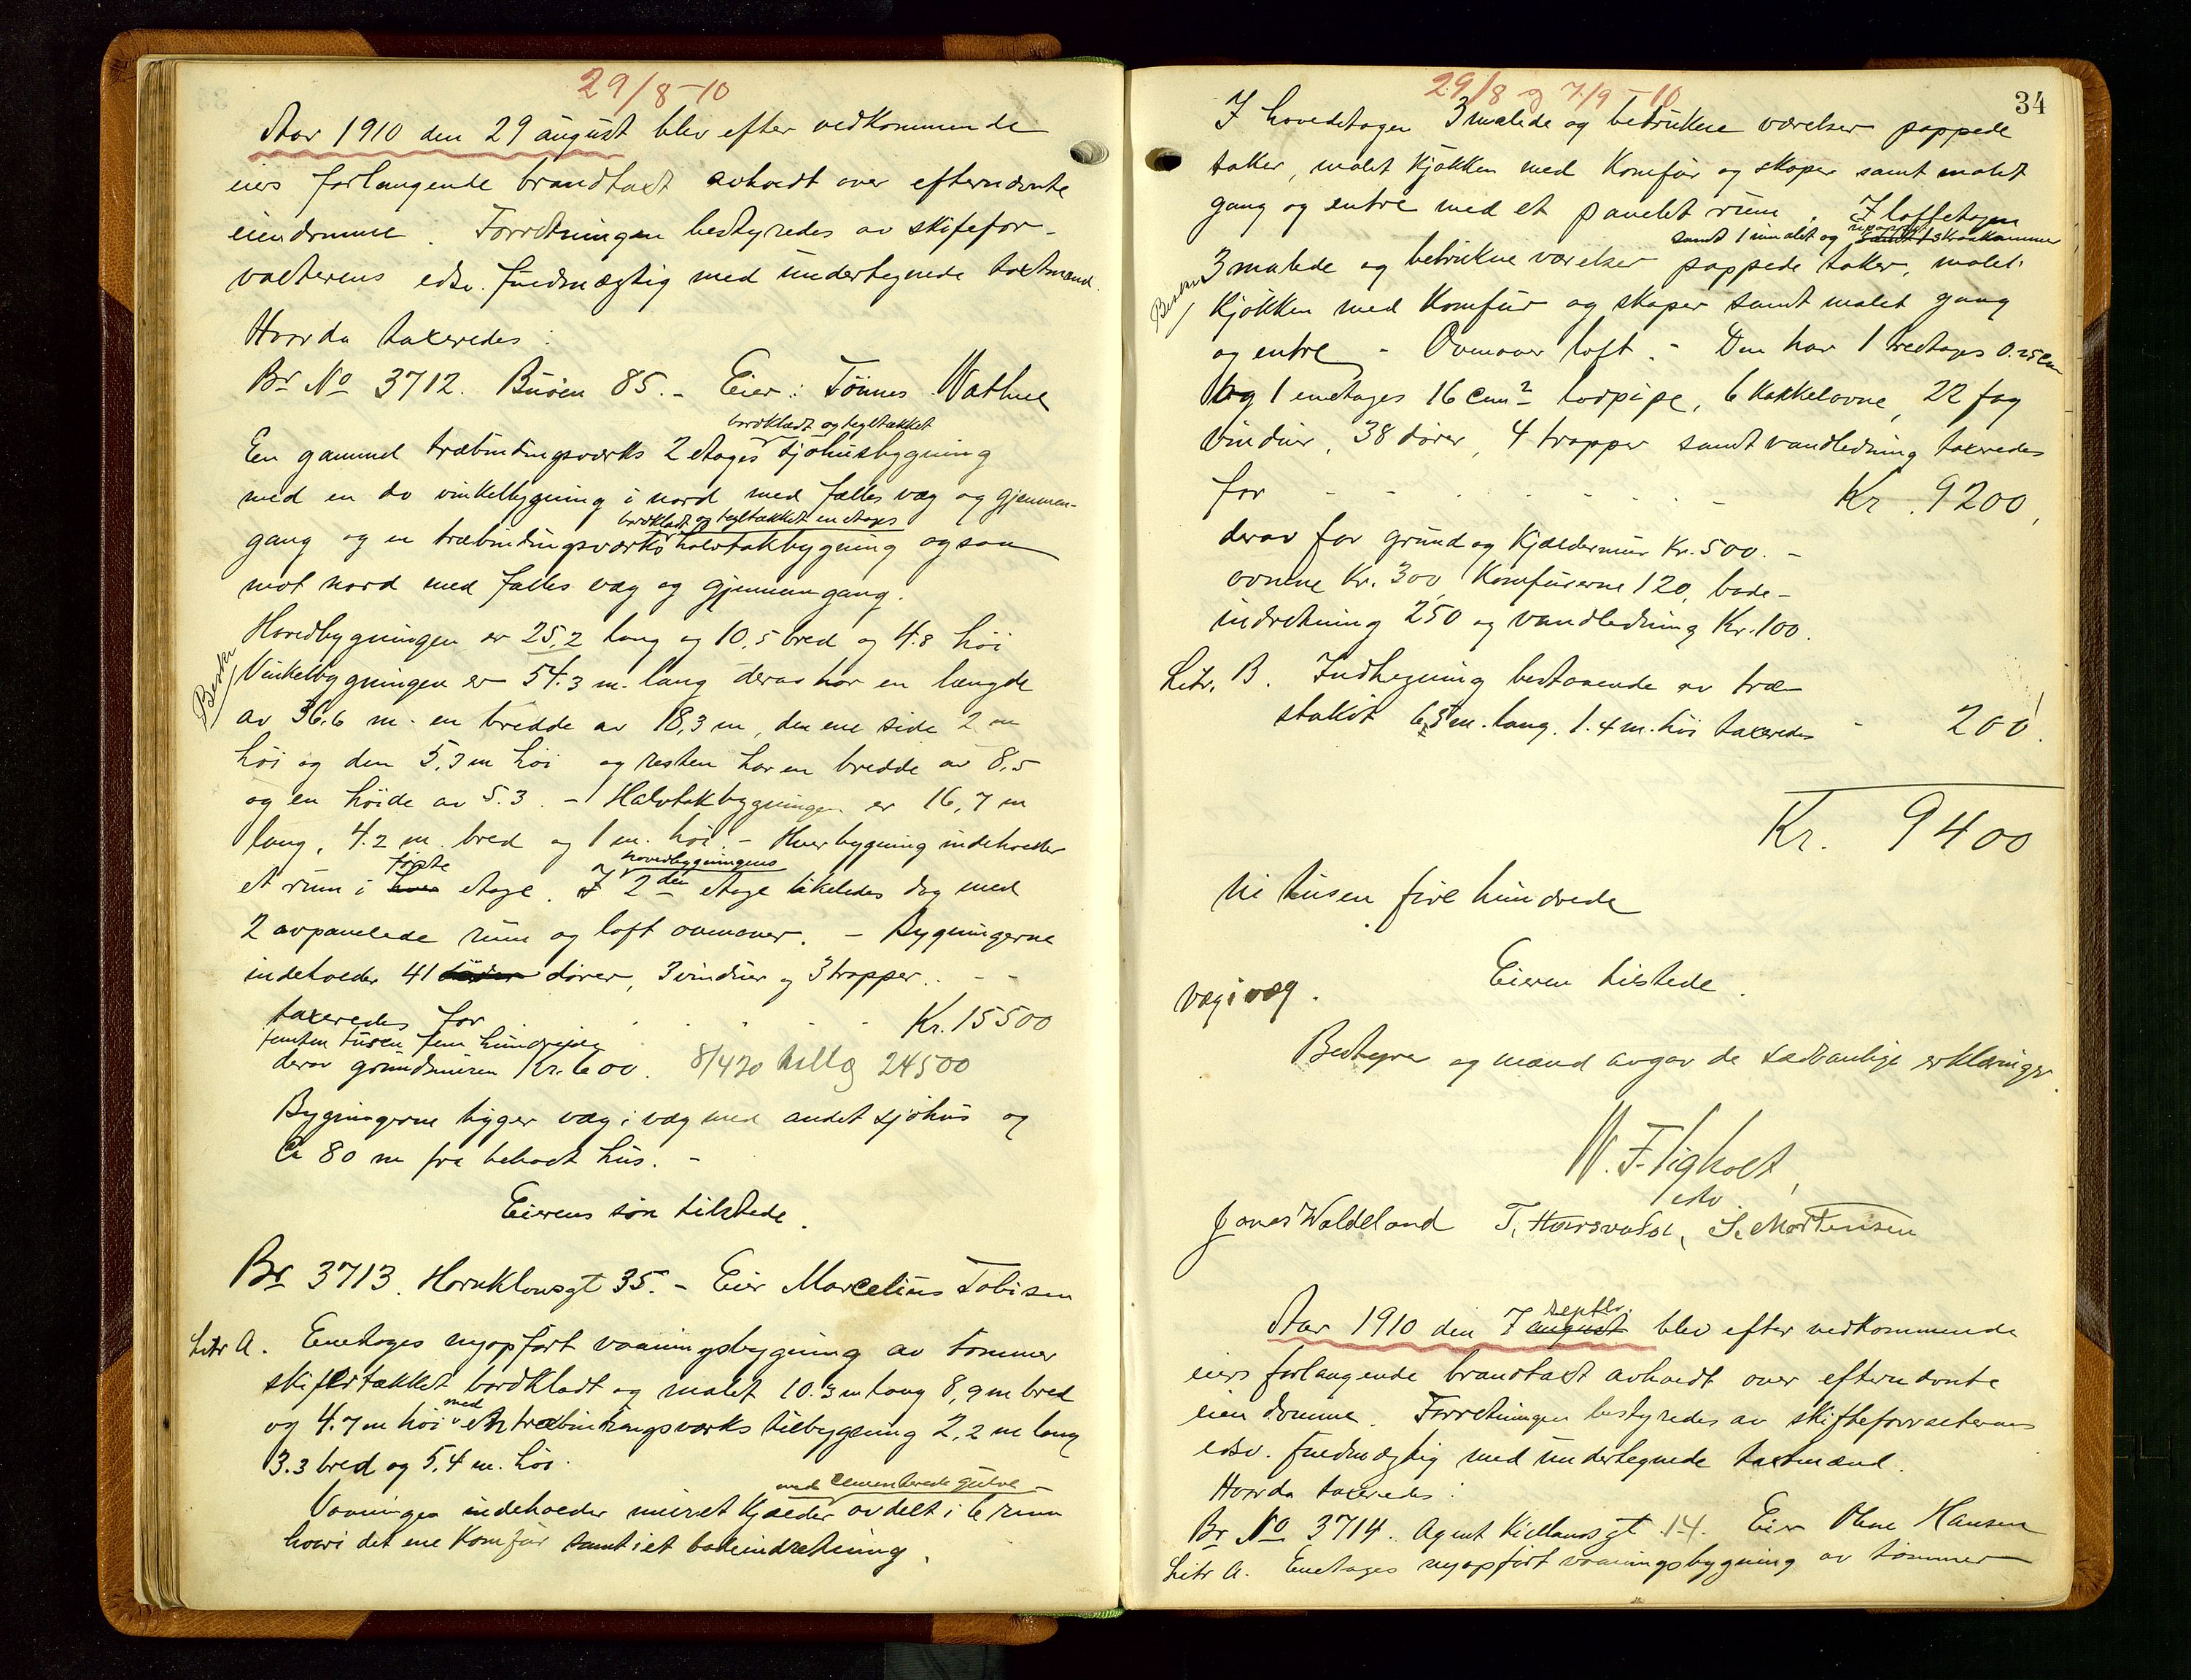 29/8-10
Aar 1910 den 29 august blev efter vedkommende
eiers forlangende brandtaxt avholdt over efternævnte
eiendomme. Forretningen bestyredes av skiftefor-
valterens edsv. fuldmægtig med undertegnede taxtmænd.
Hvorda taxeredes:
Br No 3712. Buøen 85. - Eier: Tönnes Wathne
bordklædt og tegltækket
En gammel træbindingsverks 2 etages sjöhusbygning
med en do vinkelbygning i nord med fælles væg og gjennem-
bordklædt og tegltækket en etages
gang og en træbindingsverks halvtakbygning ogsaa
mot nord med fælles væg og gjennemgang.
Hovedbygningen er 25,2 lang og 10,5 bred og 4.8 höi
Vinkelbygningen er 54.3 m. lang derav har en længde
av 36.6 m. en bredde av 18,3 m, den ene side 2 m
höi og den 5,3 m höi og resten har en bredde av 8,5
og en höide av 5.3. - Halvtakbygningen er 16,7 m
lang, 4.2 m. bred og 1 m. höi. - Hver bygning indeholder
förste og hovedbygningens
et rum i hver etage. I 2den etage likeledes dog med
2 avpanelede rum og loft ovenover. - Bygningerne
indeholder 41 dörer, 3 vinduer og 3 trapper. - -
taxeredes for Kr. 15500
femten tusen fem hundrede
derav grundmuren Kr. 600. 8/4 20 tillæg 24500
Bygningerne ligger væg i væg med andet sjöhus og
Ca 80 m fra beboet hus. -
Eierens sön tilstede.
Br 3713. Hornklovesgt 35. - Eier Marcelius Tobisen
Litr A. Enetages nyopfört vaaningsbygning av tömmer
skifertækket bordklædt og malet 10.3 m lang 8,9 m bred
med
og 4.7 m höi en træbindingsverks tilbygning 2,2 m lang
3.3 bred og 5,4 m. höi.
med cementerede gulve
Vaaningen indeholder muret kjælder avdelt i 6 rum
hvori det ene komfur samt i et badeindretning.
34
29/8 og 7/9 - 10
I hovedetagen 3 malede og betrukne værelser pappede
taker, malet kjökken med komfur og skaper samt malet
gang og entre med et panelet rum. I loftetagen
samt 1 umalet og upappet samt 1 skraakammer
3 malede og betrukne værelser pappede taker, malet
kjökken med komfur og skaper samt malet gang
og entre - Ovenover loft. - Den har 1 treetages 0.25 cm
og 1 enetages 16 cm2 lodpipe, 6 kakkelovne, 22 fag
vinduer, 38 dörer, 4 trapper samt vandledning taxeredes
for - - - - - Kr. 9200,
derav for grund og kjældermur Kr. 500. -
ovnene Kr. 300, komfurerne 120, bade-
indretning 250 og vandledning Kr. 100.
Litr. B. Indhegning bestaaende av træ-
stakit 65 m. lang. 1.4 m. höi taxeredes - 200.
Kr. 9400
ni tusen fire hundrede
Eieren tilstede.
Væg i væg.
Bestyrer og mænd avgav de sædvanlige erklæringer.
W. F. Tigholt,
edsv
Jonas Waldeland T. Haarsvold, S. Mortensen
septb.
Aar 1910 den 7 august blev efter vedkommende
eiers forlangende brandtaxt avholdt over efternævnte
eiendomme. Forretningen bestyredes av skifteforvalterens
edsv. fuldmægtig med undertegnede taxtmænd.
Hvorda taxeredes:
Br No 3714. Agent Kiellands gt 14. Eier Olene Hansen
Litr A. Enetages nyopfört vaaningsbygning av tömmer